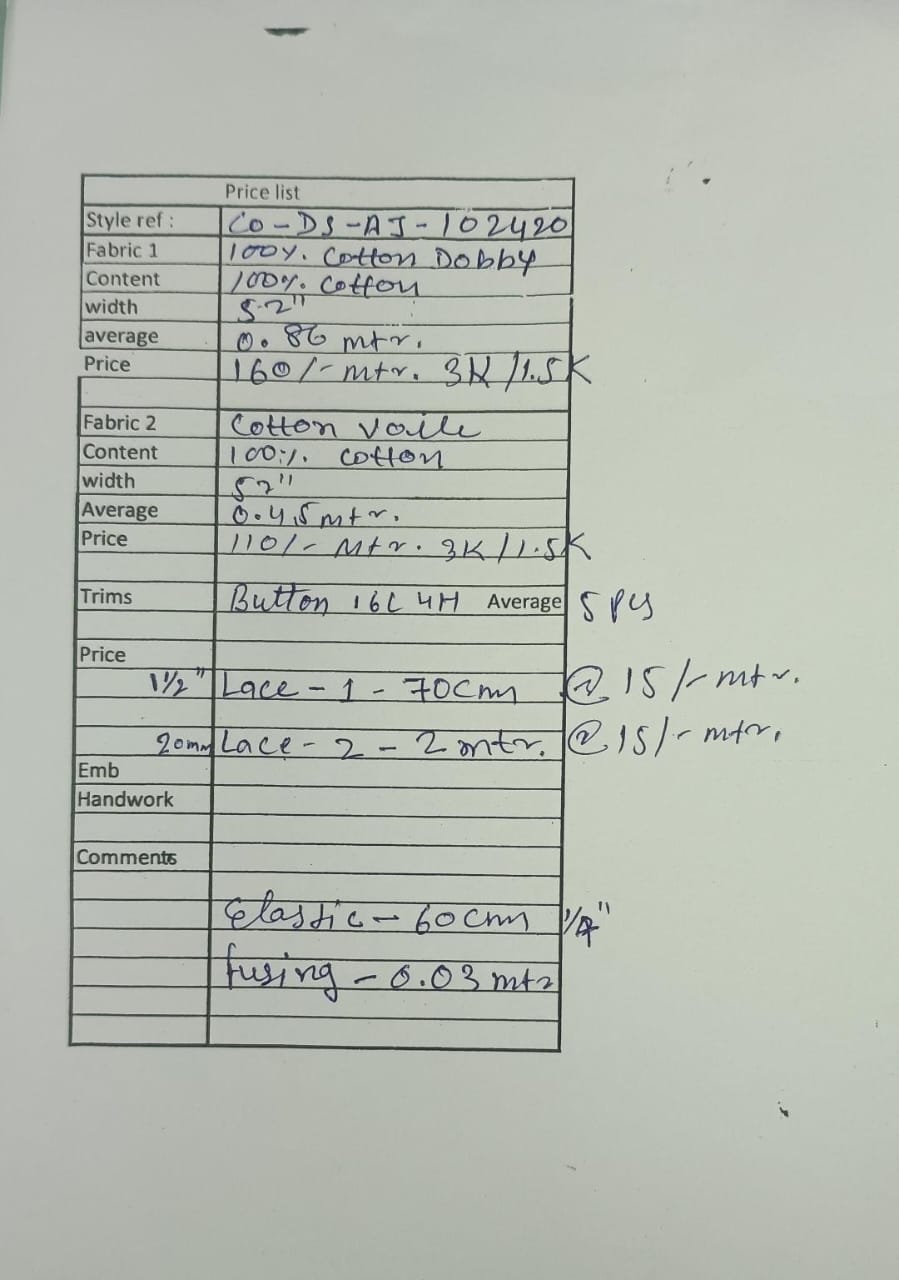 Price list
Style ref : Co-DS-AJ-102420
Fabric 1 100%. Cotton Dobby
Content 100%. Cotton
width 52"
average 0.86 mtr.
Price 160/- mtr. 3K/1.5K
Fabric 2 Cotton voile
Content 100%. cotton
width 52"
Average 0.45 mtr.
Price 110/- Mtr. 3K/1.5K
Trims Button 16L 4H Average 5 Pcs
Price
1½" Lace - 1 - 70cm @ 15/- mtr.
20mm Lace - 2 - 2 mtr. @ 15/- mtr.
Emb
Handwork
Comments
Elastic - 60cm 1/4"
fusing - 0.03 mtr